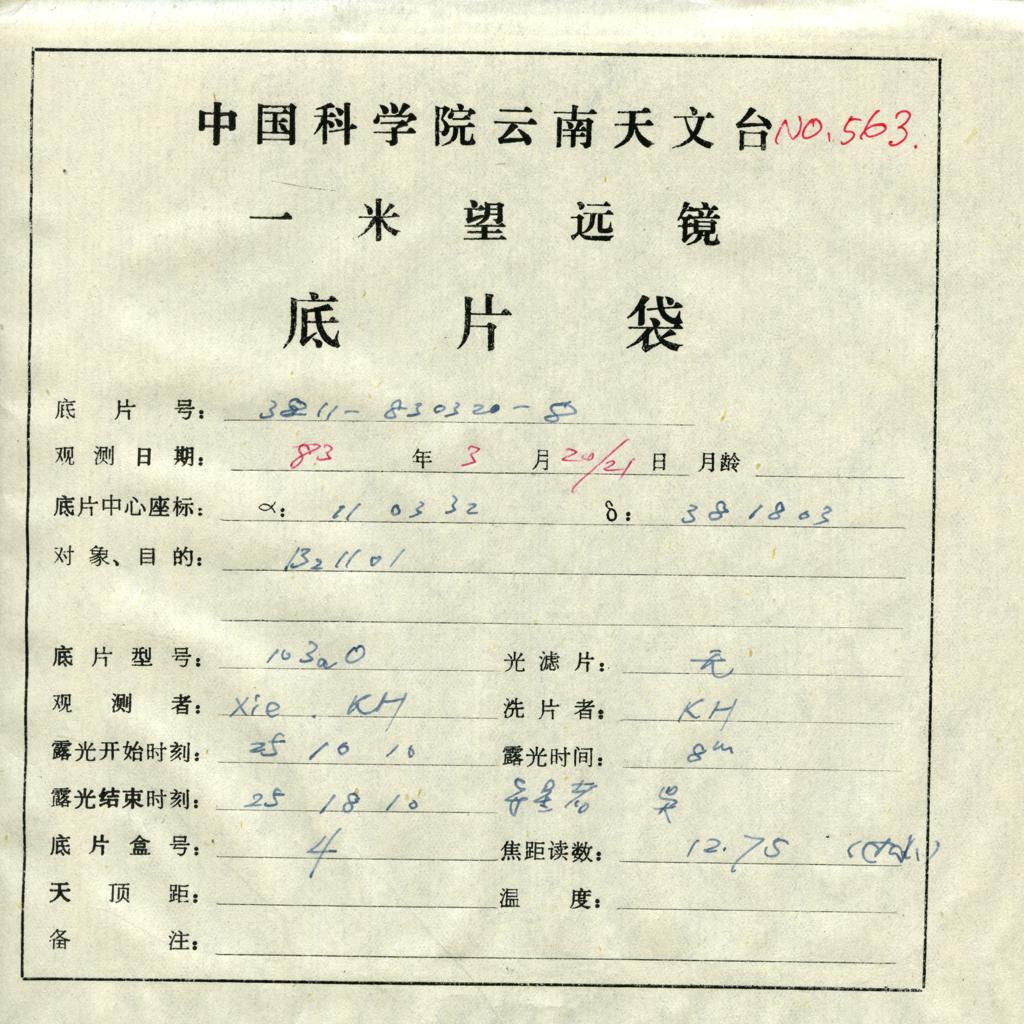 中国科学院云南天文台 NO.563.
一米望远镜
底片袋
底片号: 3811-830320-8
观测日期: 83年3月20/21日 月龄
底片中心座标: α: 11 03 32 δ: 38 18 03
对象、目的: B2 1101
底片型号: 103aO 光滤片: 无
观测者: Xie. KH 洗片者: KH
露光开始时刻: 25 10 10 露光时间: 8m
露光结束时刻: 25 18 10 导星者 吴
底片盒号: 4 焦距读数: 12.75
天顶距: 温度:
备注: